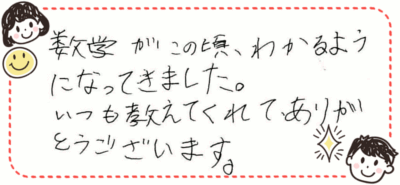 数学がこの頃、わかるよう
になってきました。
いつも教えてくれて、ありが
とうございます。